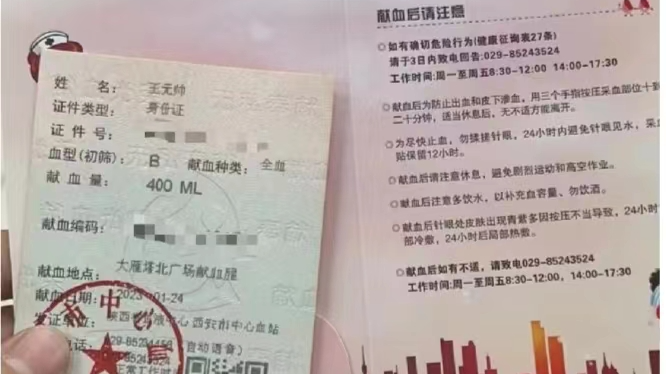 姓 名: 王元帅
证件类型: 身份证
证 件 号:
血型(初筛): B 献血种类: 全血
献 血 量: 400 ML
献血编码:
献血地点: 大雁塔北广场献血屋
献血日期: 2023-01-24
发证单位: 陕西省血液中心 西安市中心血站
电话: 029-85234456 (自动语音)
献血后请注意
如有确切危险行为(健康征询表27条)
请于3日内致电回告:029-85243524
工作时间:周一至周五8:30-12:00 14:00-17:30
献血后为防止出血和皮下渗血，用三个手指按压采血部位十到
二十分钟，适当休息后，无不适方能离开。
为尽快止血，勿揉搓针眼，24小时内避免针眼见水，采血
贴保留12小时。
献血后请注意休息，避免剧烈运动和高空作业。
献血后注意多饮水，以补充血容量、勿饮酒。
献血后针眼处皮肤出现青紫多因按压不当导致，24小时
部冷敷，24小时后局部热敷。
献血后如有不适，请致电029-85243524
工作时间:周一至周五8:30-12:00，14:00-17:30